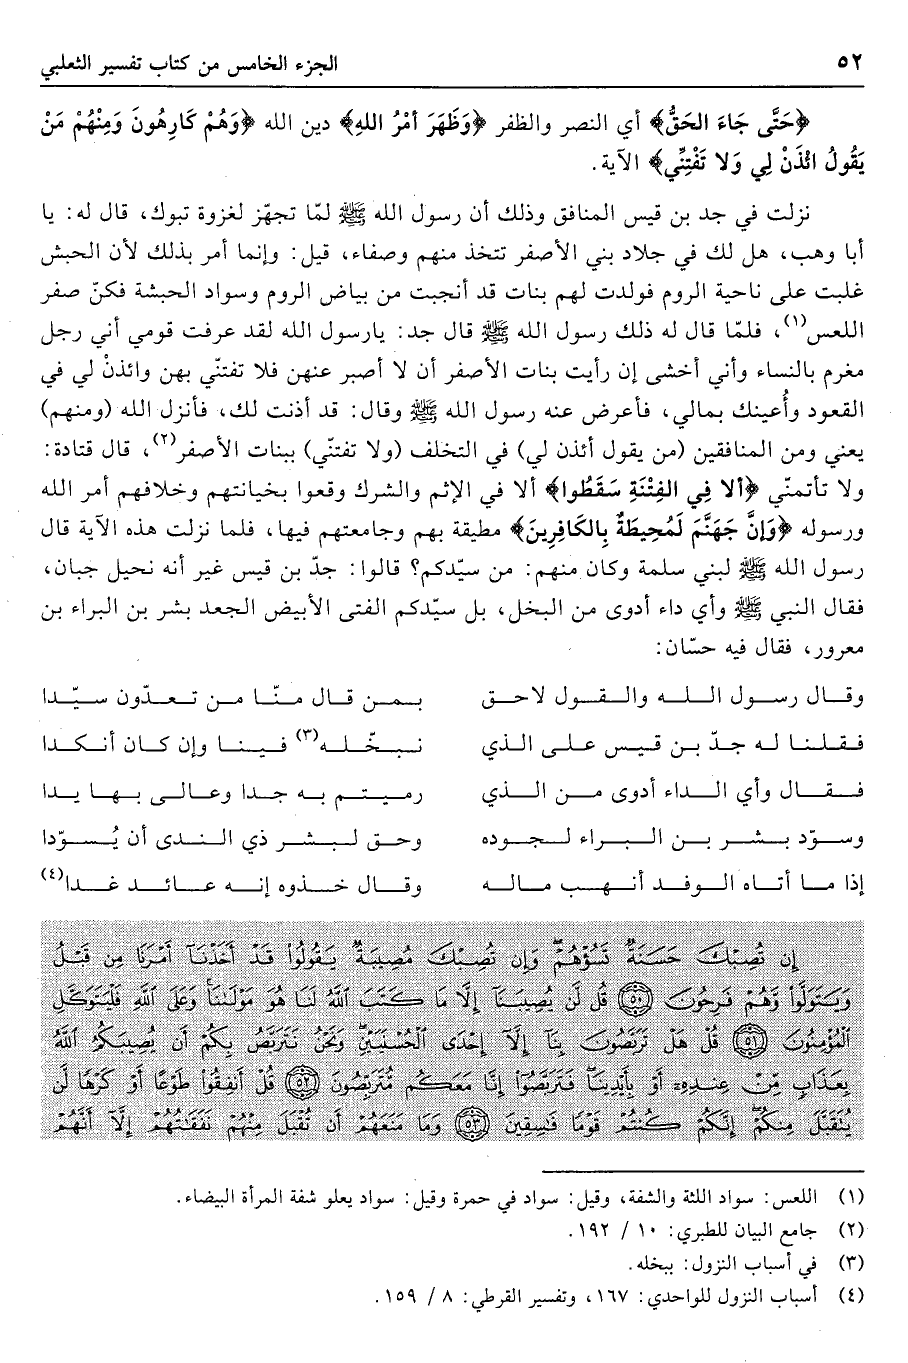 ٥٢ الجزء الخامس من كتاب تفسير الثعلبي
﴿حَتَّى جَاءَ الحَقُّ﴾ أي النصر والظفر ﴿وَظَهَرَ أمْرُ اللهِ﴾ دين الله ﴿وَهُمْ كَارِهُونَ وَمِنْهُمْ مَنْ
يَقُولُ ائْذَنْ لِي وَلا تَفْتِنِّي﴾ الآية.
نزلت في جد بن قيس المنافق وذلك أن رسول الله ﷺ لمّا تجهّز لغزوة تبوك، قال له: يا
أبا وهب، هل لك في جلاد بني الأصفر تتخذ منهم وصفاء، قيل: وإنما أمر بذلك لأن الحبش
غلبت على ناحية الروم فولدت لهم بنات قد أنجبت من بياض الروم وسواد الحبشة فكنّ صفر
اللعس(١)، فلمّا قال له ذلك رسول الله ﷺ قال جد: يارسول الله لقد عرفت قومي أني رجل
مغرم بالنساء وأني أخشى إن رأيت بنات الأصفر أن لا أصبر عنهن فلا تفتنّي بهن وائذنْ لي في
القعود وأُعينك بمالي، فأعرض عنه رسول الله ﷺ وقال: قد أذنت لك، فأنزل الله (ومنهم)
يعني ومن المنافقين (من يقول أئذن لي) في التخلف (ولا تفتنّي) ببنات الأصفر(٢)، قال قتادة:
ولا تأتمنّي ﴿ألا فِي الفِتْنَةِ سَقَطُوا﴾ ألا في الإثم والشرك وقعوا بخيانتهم وخلافهم أمر الله
ورسوله ﴿وَإنَّ جَهَنَّمَ لَمُحِيطَةٌ بِالكَافِرِينَ﴾ مطيقة بهم وجامعتهم فيها، فلما نزلت هذه الآية قال
رسول الله ﷺ لبني سلمة وكان منهم: من سيّدكم؟ قالوا: جدّ بن قيس غير أنه نحيل جبان،
فقال النبي ﷺ وأي داء أدوى من البخل، بل سيّدكم الفتى الأبيض الجعد بشر بن البراء بن
معرور، فقال فيه حسّان:
وقال رسول الله والقول لاحق بمن قال منّا من تعدّون سيّدا
فقلنا له جدّ بن قيس على الذي نبخّله(٣) فينا وإن كان أنكدا
فقال وأي الداء أدوى من الذي رميتم به جدا وعالى بها يدا
وسوّد بشر بن البراء لجوده وحق لبشر ذي الندى أن يُسوّدا
إذا ما أتاه الوفد أنهب ماله وقال خذوه إنه عائد غدا(٤)
إِن تُصِبْكَ حَسَنَةٌ تَسُؤْهُمْ وَإِن تُصِبْكَ مُصِيبَةٌ يَقُولُوا۟ قَدْ أَخَذْنَآ أَمْرَنَا مِن قَبْلُ
وَيَتَوَلَّوا۟ وَّهُمْ فَرِحُونَ ﴿٥٠﴾ قُل لَّن يُصِيبَنَآ إِلَّا مَا كَتَبَ ٱللَّهُ لَنَا هُوَ مَوْلَىٰنَا وَعَلَى ٱللَّهِ فَلْيَتَوَكَّلِ
ٱلْمُؤْمِنُونَ ﴿٥١﴾ قُلْ هَلْ تَرَبَّصُونَ بِنَآ إِلَّآ إِحْدَى ٱلْحُسْنَيَيْنِ وَنَحْنُ نَتَرَبَّصُ بِكُمْ أَن يُصِيبَكُمُ ٱللَّهُ
بِعَذَابٍ مِّنْ عِندِهِۦٓ أَوْ بِأَيْدِينَا فَتَرَبَّصُوٓا۟ إِنَّا مَعَكُم مُّتَرَبِّصُونَ ﴿٥٢﴾ قُلْ أَنفِقُوا۟ طَوْعًا أَوْ كَرْهًا لَّن
يُتَقَبَّلَ مِنكُمْ إِنَّكُمْ كُنتُمْ قَوْمًا فَاسِقِينَ ﴿٥٣﴾ وَمَا مَنَعَهُمْ أَن تُقْبَلَ مِنْهُمْ نَفَقَاتُهُمْ إِلَّآ أَنَّهُمْ
(١) اللعس: سواد اللثة والشفة، وقيل: سواد في حمرة وقيل: سواد يعلو شفة المرأة البيضاء.
(٢) جامع البيان للطبري: ١٠ / ١٩٢.
(٣) في أسباب النزول: ببخله.
(٤) أسباب النزول للواحدي: ١٦٧، وتفسير القرطي: ٨ / ١٥٩.